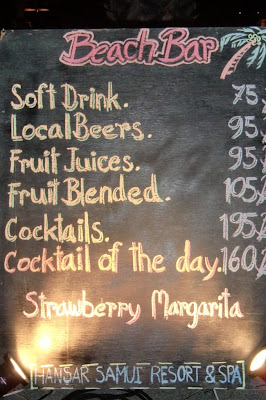 Beach Bar
Soft Drink. 75
Local Beers. 95
Fruit Juices. 95
Fruit Blended. 105
Cocktails. 195
Cocktail of the day. 160
Strawberry Margarita
HANSAR SAMUI RESORT & SPA